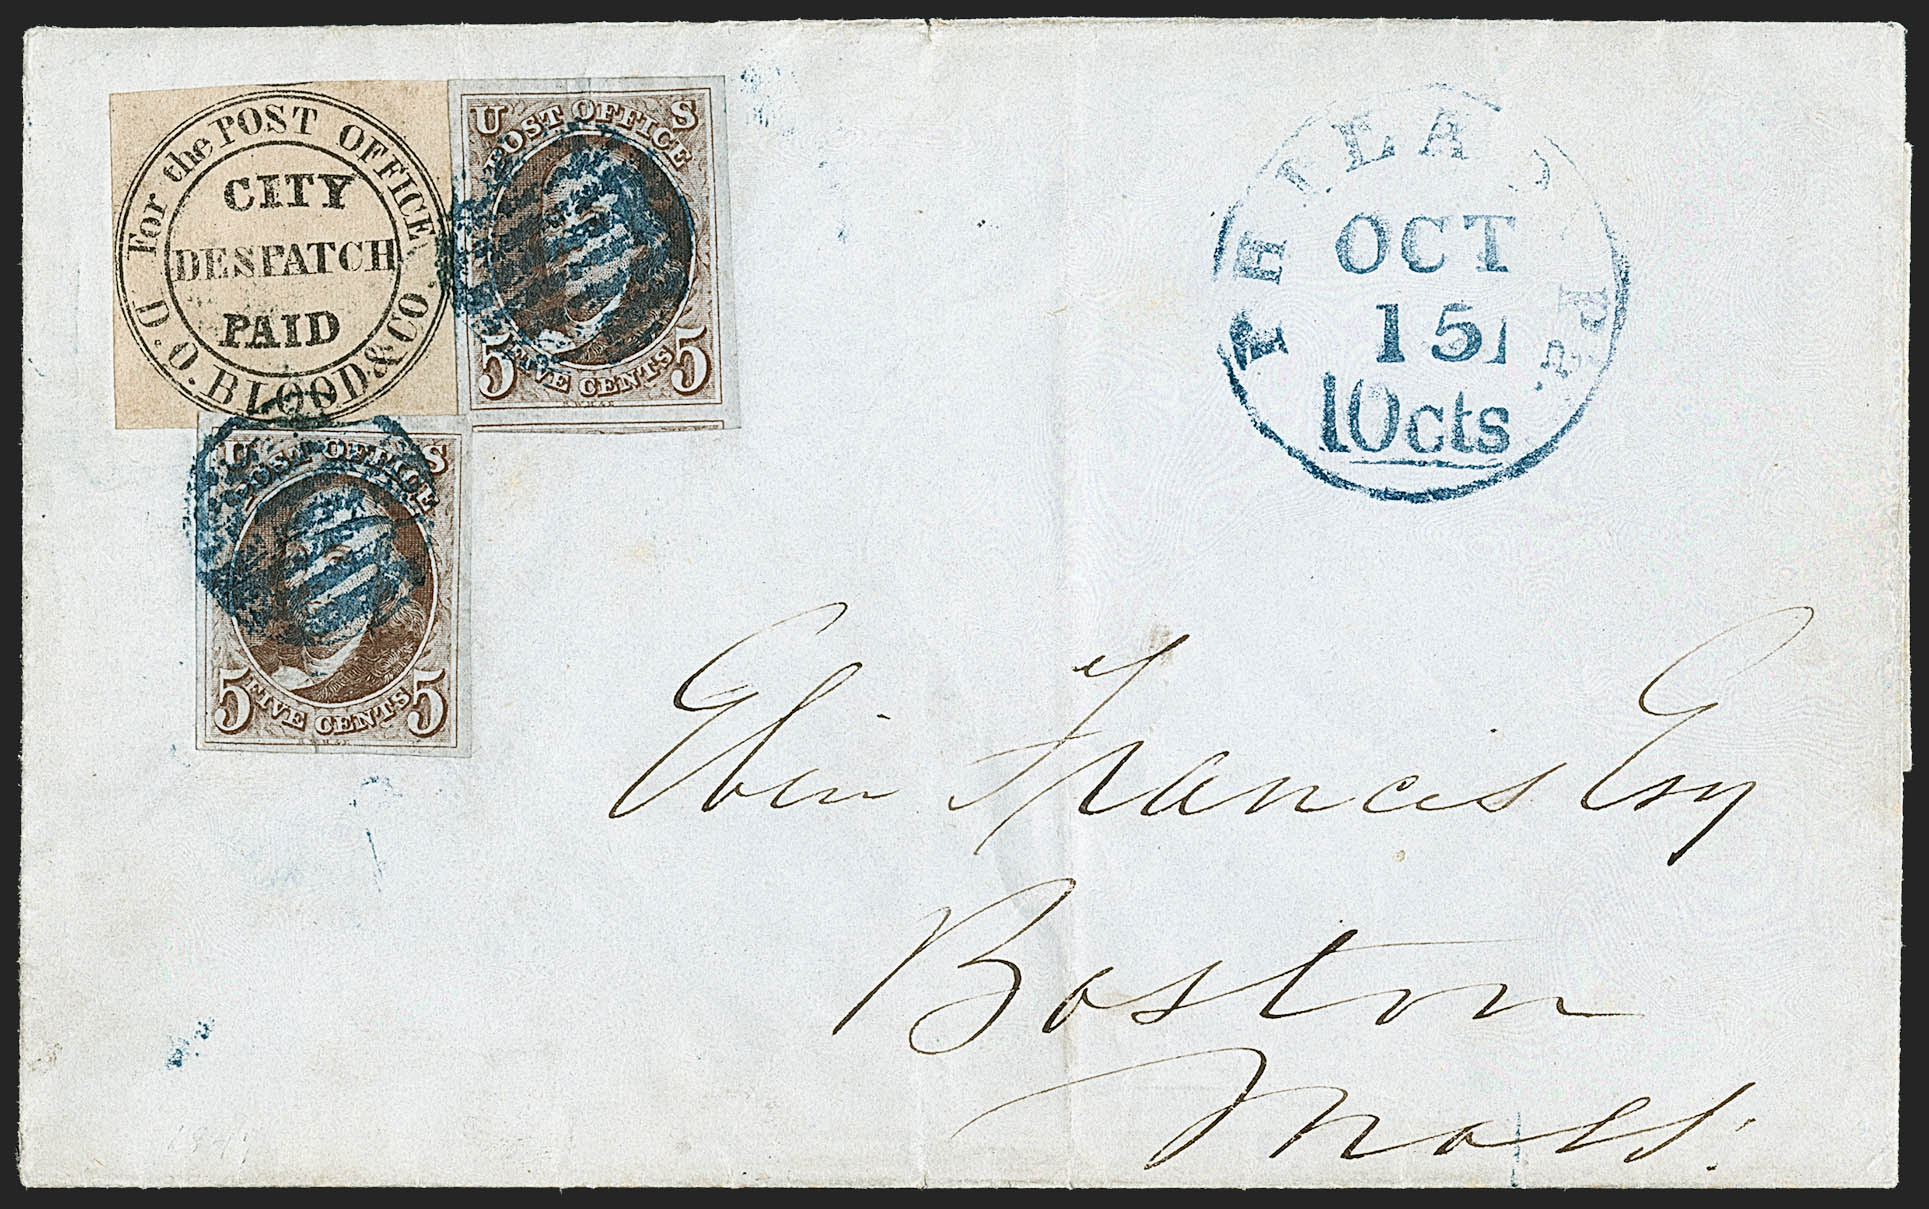 For the POST OFFICE
CITY
DESPATCH
PAID
D.O. BLOOD & CO
U S
POST OFFICE
5 FIVE CENTS 5
U S
POST OFFICE
5 FIVE CENTS 5
PHILADA Pa.
OCT
15
10cts
Eben Francis Esq
Boston
Mass.